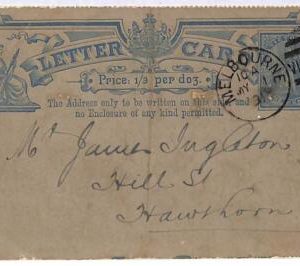 LETTER CARD
Price: 1/3 per doz.
The Address only to be written on this side and
no Enclosure of any kind permitted.
MELBOURNE
Mr James Ingleton
Hill St
Hawthorn